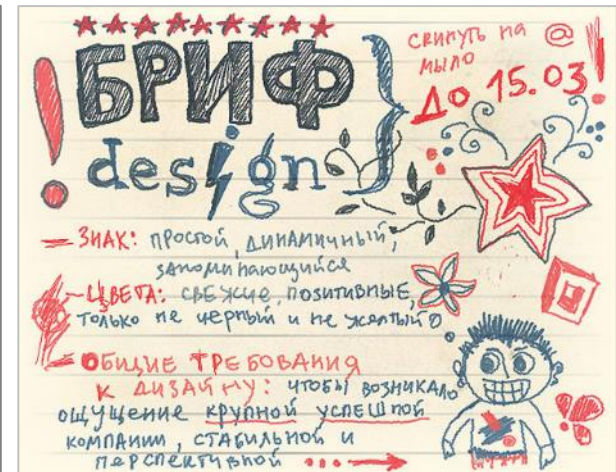 БРИФ
design
скинуть на @
мыло
до 15.03
ЗНАК: простой, динамичный,
запоминающийся
ЦВЕТА: свежие, позитивные,
только не черный и не желтый
ОБЩИЕ ТРЕБОВАНИЯ
К ДИЗАЙНУ: чтобы возникало
ощущение крупной успешной
компании, стабильной и
перспективной